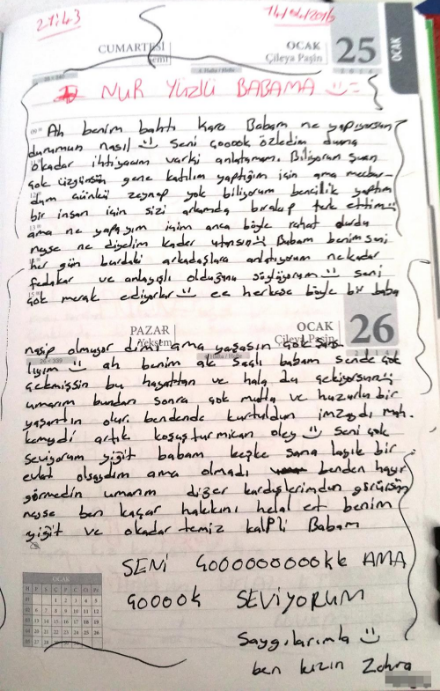 21:43
14/04/2016
CUMARTESİ
OCAK
Çileya Paşîn
25
OCAK
NUR YÜZLÜ BABAMA
Ah benim bahtı kara Babam ne yapıyorsun
durumun nasıl seni çooook özledim duma
okadar ihtiyacım varki anlatamam. Biliyorum şuan
çok üzgünsün gene katılım yaptığım için ama mecbur-
dum çünkü zeynep yok biliyorum bencillik yaptım
bir insan için sizi arkamda bırakıp terk ettim
ama ne yapayım içim anca böyle rahat durdu
neyse ne diyelim kader utansın Babam benim seni
her gün burdaki arkadaşlara anlatıyorum nekadar
fedakar ve anlayışlı olduğunu söylüyorum seni
çok merak ediyorlar ee herkese böyle bir baba
PAZAR
Yekşem
OCAK
Çileya Paşîn
26
nasip olmuyor dimi ama yaşasın çokki şans-
lıyım ah benim ak saçlı babam sende çok
çekmişsin bu hayattan ve hala da çekiyorsun
umarım bundan sonra çok mutlu ve huzurlu bir
yaşantın olur. bendende kurtuldun imzaydı mah-
kemeydi artık koşuşturmican oley seni çok
seviyorum yiğit babam keşke sana layık bir
evlat olsaydım ama olmadı benden hayır
görmedin umarım diğer kardeşlerimden görürsün
neyse ben kaçar hakkını helal et benim
yiğit ve okadar temiz kalpli Babam
SENİ ÇOOOOOOOOOkk AMA
ÇOOOOK SEVİYORUM
Saygılarımla
ben kızın Zehra
OCAK